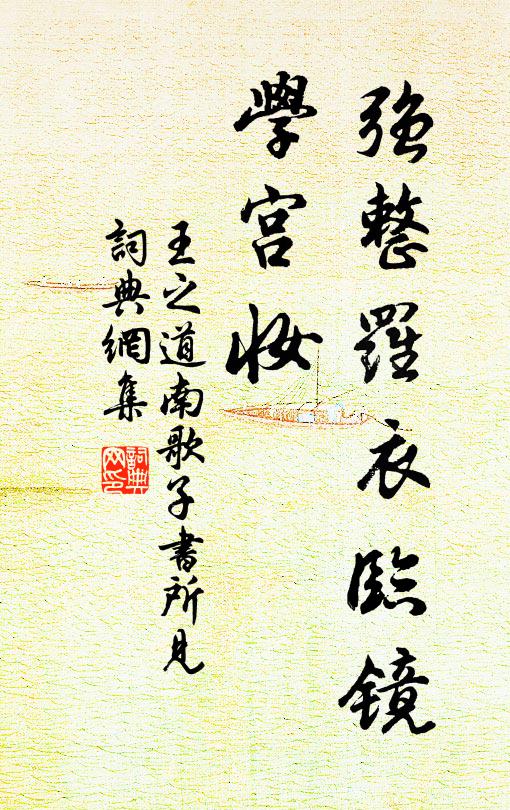 強整羅衣臨鏡
學宮妝
王之道南歌子書所見
詞典網集
詞典
网印